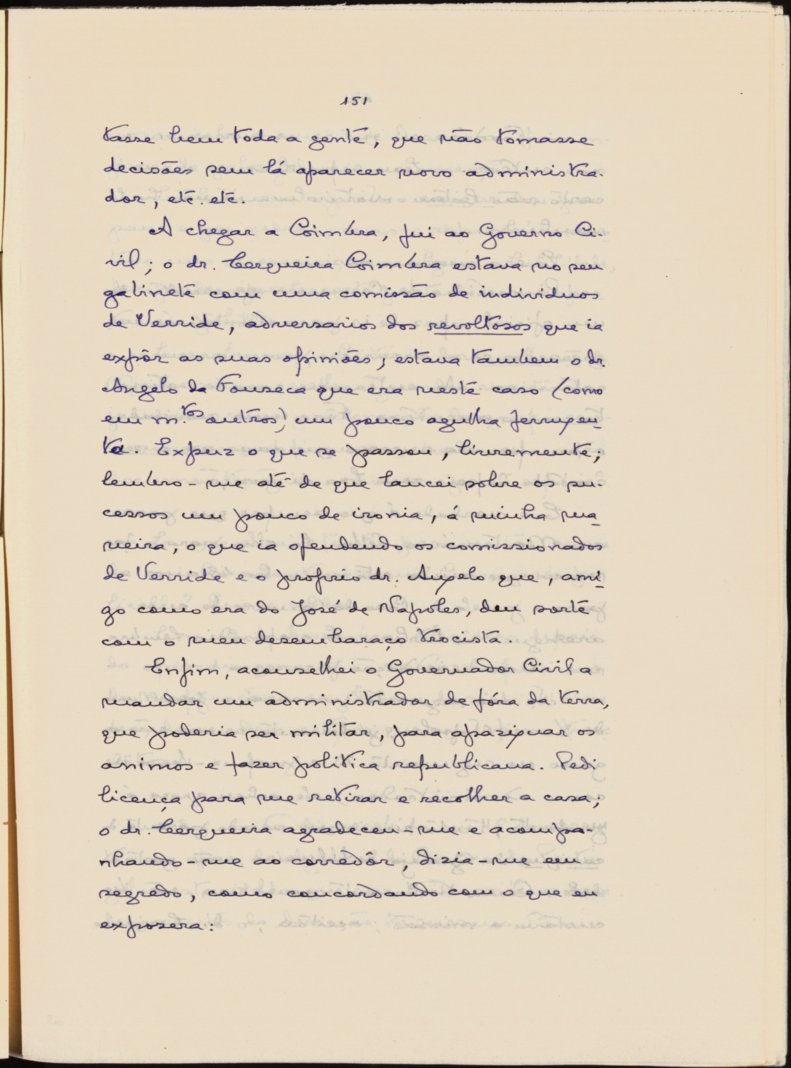 151
tasse bem toda a gente, que não tomasse
decisões sem lá aparecer novo administra-
dor, etc. etc.
A chegar a Coimbra, fui ao Governo Ci-
vil; o dr. Cerqueira Coimbra estava no seu
gabinete com uma comissão de individuos
de Verride, adversarios dos revoltosos que ia
expôr as suas opiniões; estava tambem o dr.
Angelo da Fonseca que era neste caso (como
em m.tos outros) um pouco agulha ferrugen-
ta. Expuz o que se passou, livremente;
lembro-me até de que lancei sobre os su-
cessos um pouco de ironia, á minha ma-
neira, o que ia ofendendo os comissionados
de Verride e o proprio dr. Angelo que, ami-
go como era do José de Napoles, deu sorte
com o meu desembaraço trocista.
Enfim, aconselhei o Governador Civil a
mandar um administrador de fóra da terra,
que poderia ser militar, para apaziguar os
animos e fazer politica republicana. Pedi
licença para me retirar e recolher a casa;
o dr. Cerqueira agradeceu-me e acompa-
nhando-me ao corredôr, dizia-me em
segredo, como concordando com o que eu
exposera: